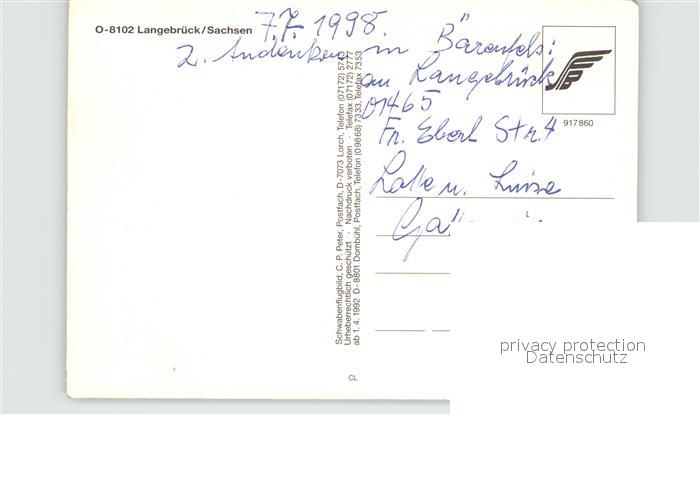 O-8102 Langebrück/Sachsen
7.7. 1998.
z. Andenken in Bärenfels:
an Langebrück
01465
Fr. Ebert Str. 4
Lotte u. Luise
917860
Schwabenflugbild, C. P. Peter, Postfach, D-7073 Lorch, Telefon (07172) 5740
Urheberrechtlich geschützt · Nachdruck verboten · Telefax (07172) 2777
ab 1. 4. 1992 D-8801 Dombühl, Postfach, Telefon (09868) 7333, Telefax 7353
CL
privacy protection
Datenschutz